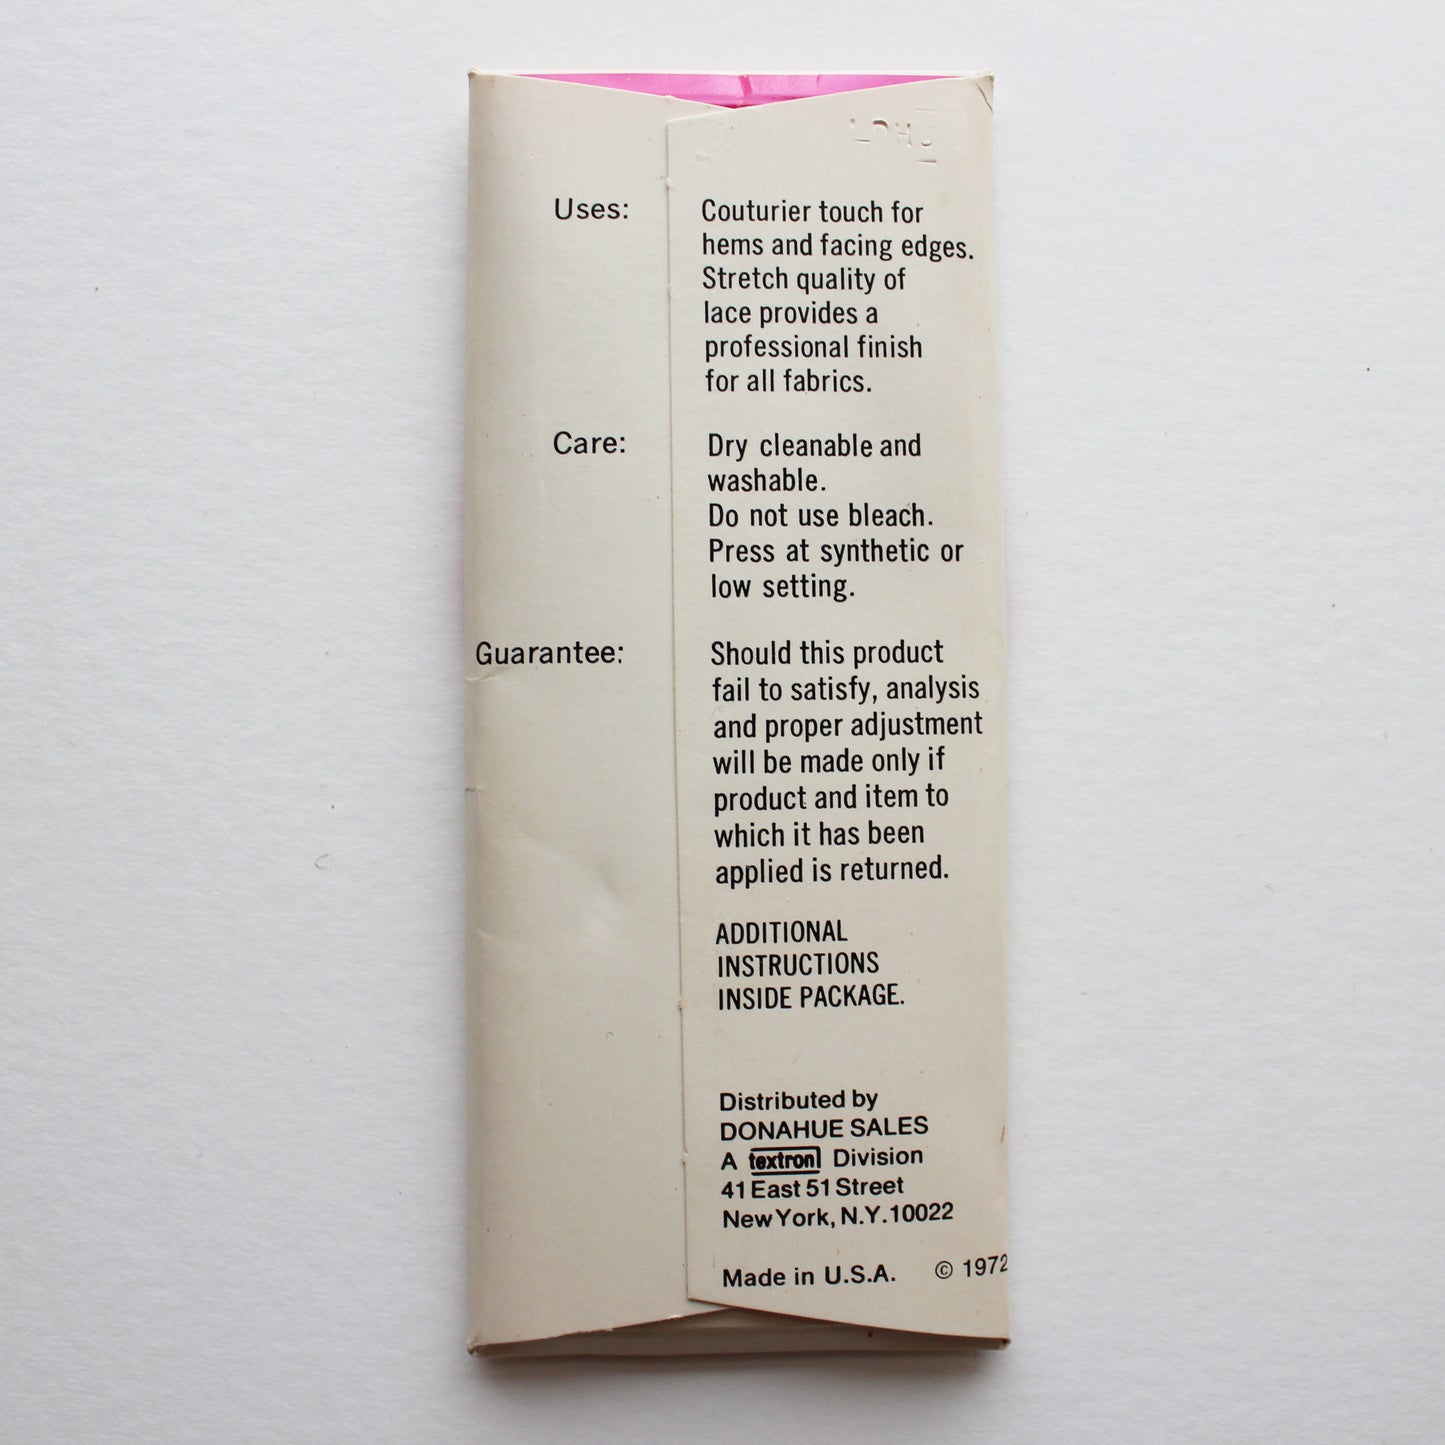 Uses:
Couturier touch for
hems and facing edges.
Stretch quality of
lace provides a
professional finish
for all fabrics.
Care:
Dry cleanable and
washable.
Do not use bleach.
Press at synthetic or
low setting.
Guarantee:
Should this product
fail to satisfy, analysis
and proper adjustment
will be made only if
product and item to
which it has been
applied is returned.
ADDITIONAL
INSTRUCTIONS
INSIDE PACKAGE.
Distributed by
DONAHUE SALES
A textron Division
41 East 51 Street
New York, N.Y. 10022
Made in U.S.A. © 1972